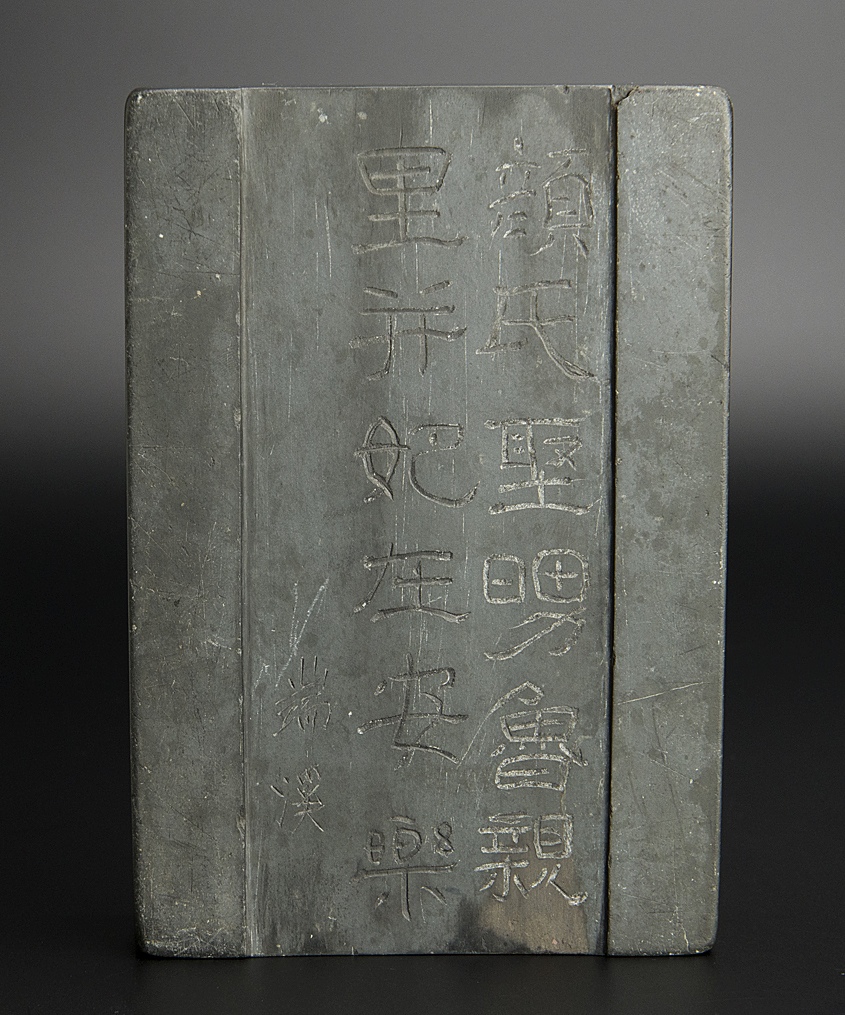 顏氏聖舅魯親
里并妃在安樂
端溪